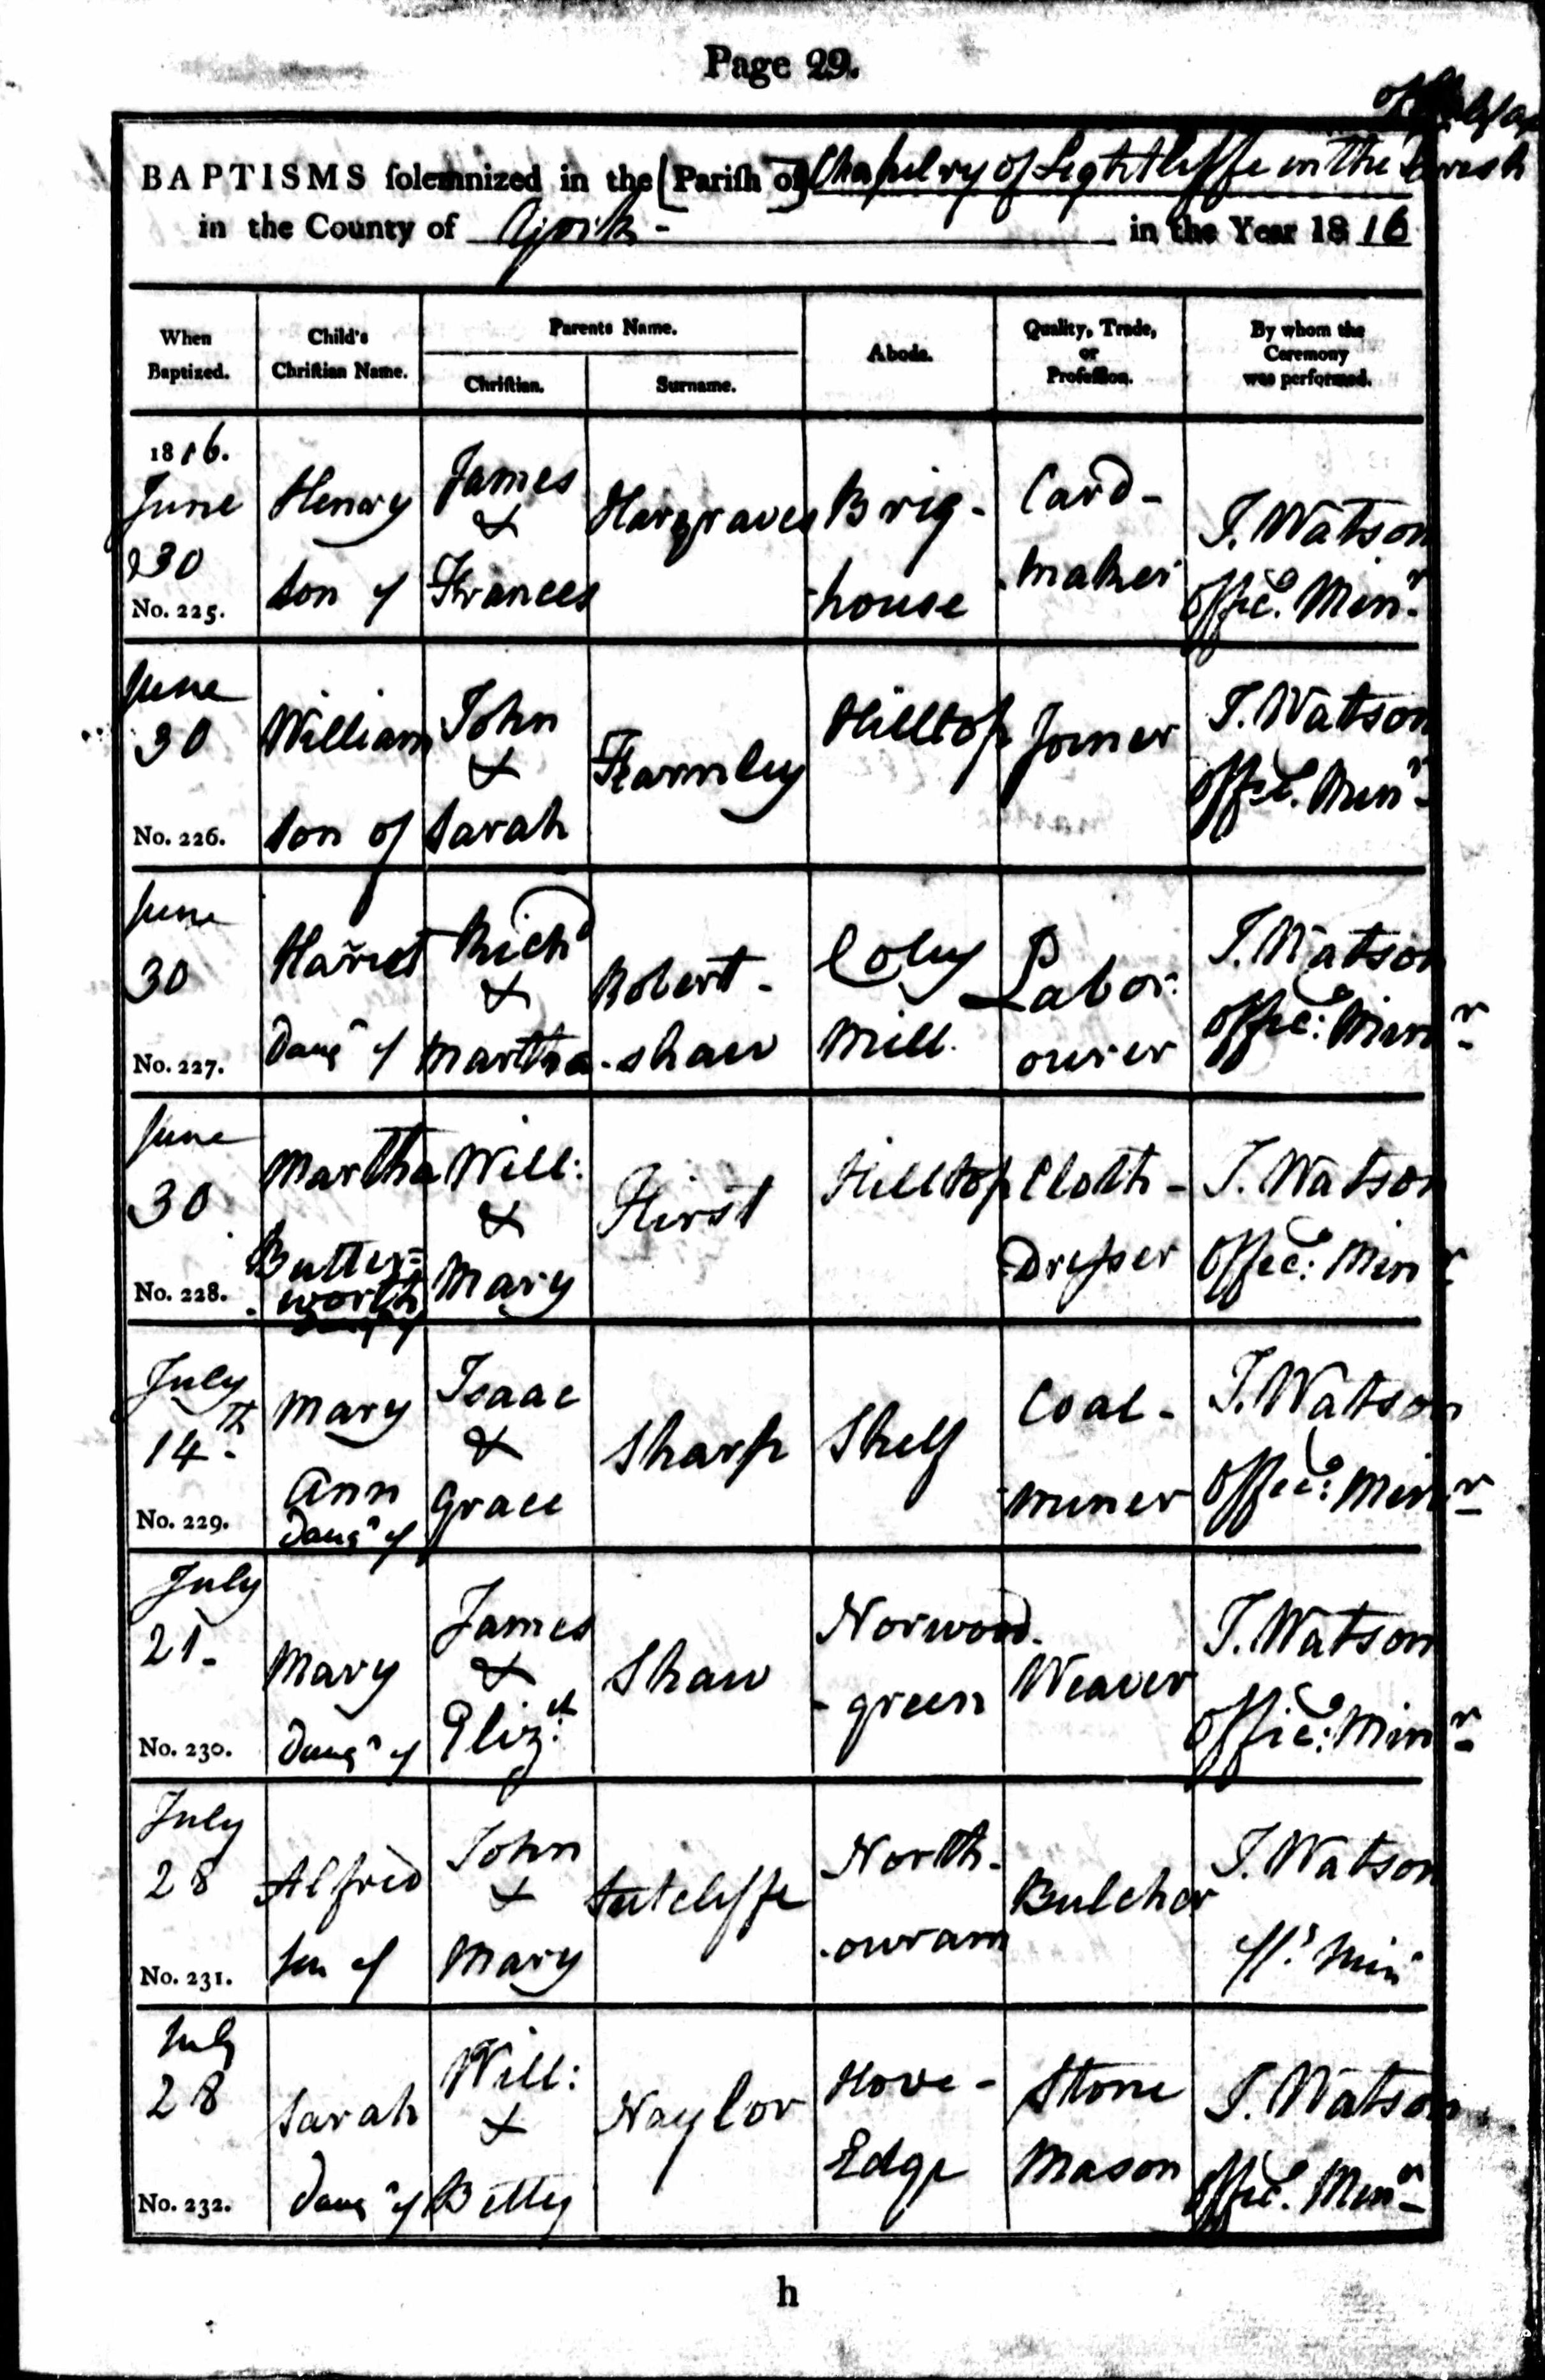 Page 29.
of Halifax
BAPTISMS solemnized in the [Parish of] Chapelry of Lightcliffe in the Parish
in the County of York - in the Year 1816
When Baptized.
Child's Christian Name.
Parents Name.
Christian.
Surname.
Abode.
Quality, Trade, or Profession.
By whom the Ceremony was performed.
1816.
June
30
No. 225.
Henry
son of
James
&
Frances
Hargraves
Brig-
-house
Card-
-maker
T. Watson
Offic. Minr.
June
30
No. 226.
William
son of
John
&
Sarah
Farmley
Hilltop
Joiner
T. Watson
Offic. Minr.
June
30
No. 227.
Hariet
Daugr of
Richd
&
Martha
Robert-
-shaw
Coley
Mill.
Labor-
ourer
T. Watson
Offic: Minr.
June
30
No. 228.
Martha
Butter=
-worth
Daugr of
Will:
&
Mary
Hirst
Hilltop
Cloth-
Dresser
T. Watson
Offic: Minr
July
14th.
No. 229.
Mary
Ann
Daugr of
Isaac
&
Grace
Sharp
Shelf
Coal-
-miner
T. Watson
Offic: Minr
July
21-
No. 230.
Mary
Daugr of
James
&
Eliz:th
Shaw
Norwood-
-green
Weaver
T. Watson
Offic: Minr
July
28
No. 231.
Alfred
Son of
John
&
Mary
Sutcliffe
North-
-owram
Butcher
T. Watson
Minr
July
28
No. 232.
Sarah
Daugr of
Will:
&
Betty
Naylor
Hove-
Edge
Stone
Mason
T. Watson
Offic. Minr
h